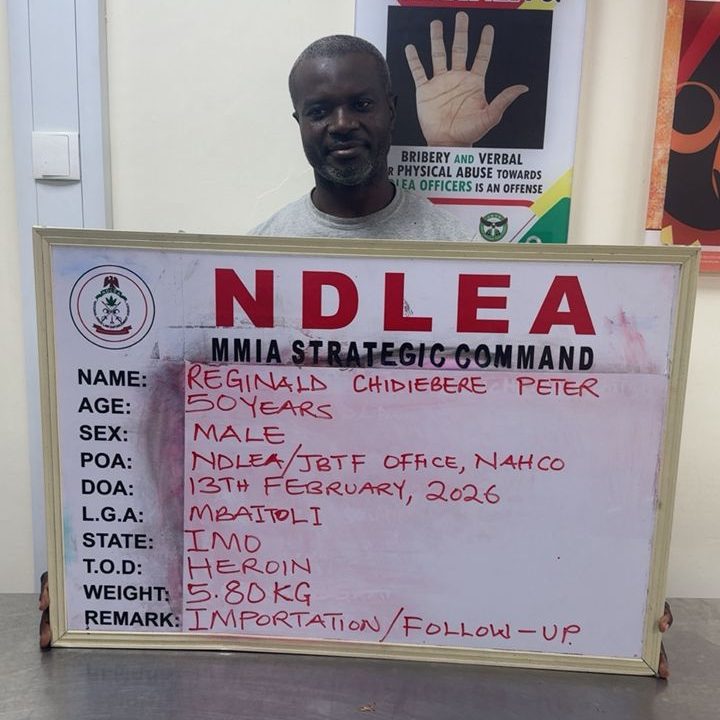 BRIBERY AND VERBAL
PHYSICAL ABUSE TOWARDS
NDLEA OFFICERS IS AN OFFENSE
NDLEA
MMIA STRATEGIC COMMAND
NAME: REGINALD CHIDIEBERE PETER
AGE: 50 YEARS
SEX: MALE
POA: NDLEA/JBTF OFFICE, NAHCO
DOA: 13TH FEBRUARY, 2026
L.G.A: MBAITOLI
STATE: IMO
T.O.D: HEROIN
WEIGHT: 5.80 KG
REMARK: IMPORTATION/FOLLOW-UP